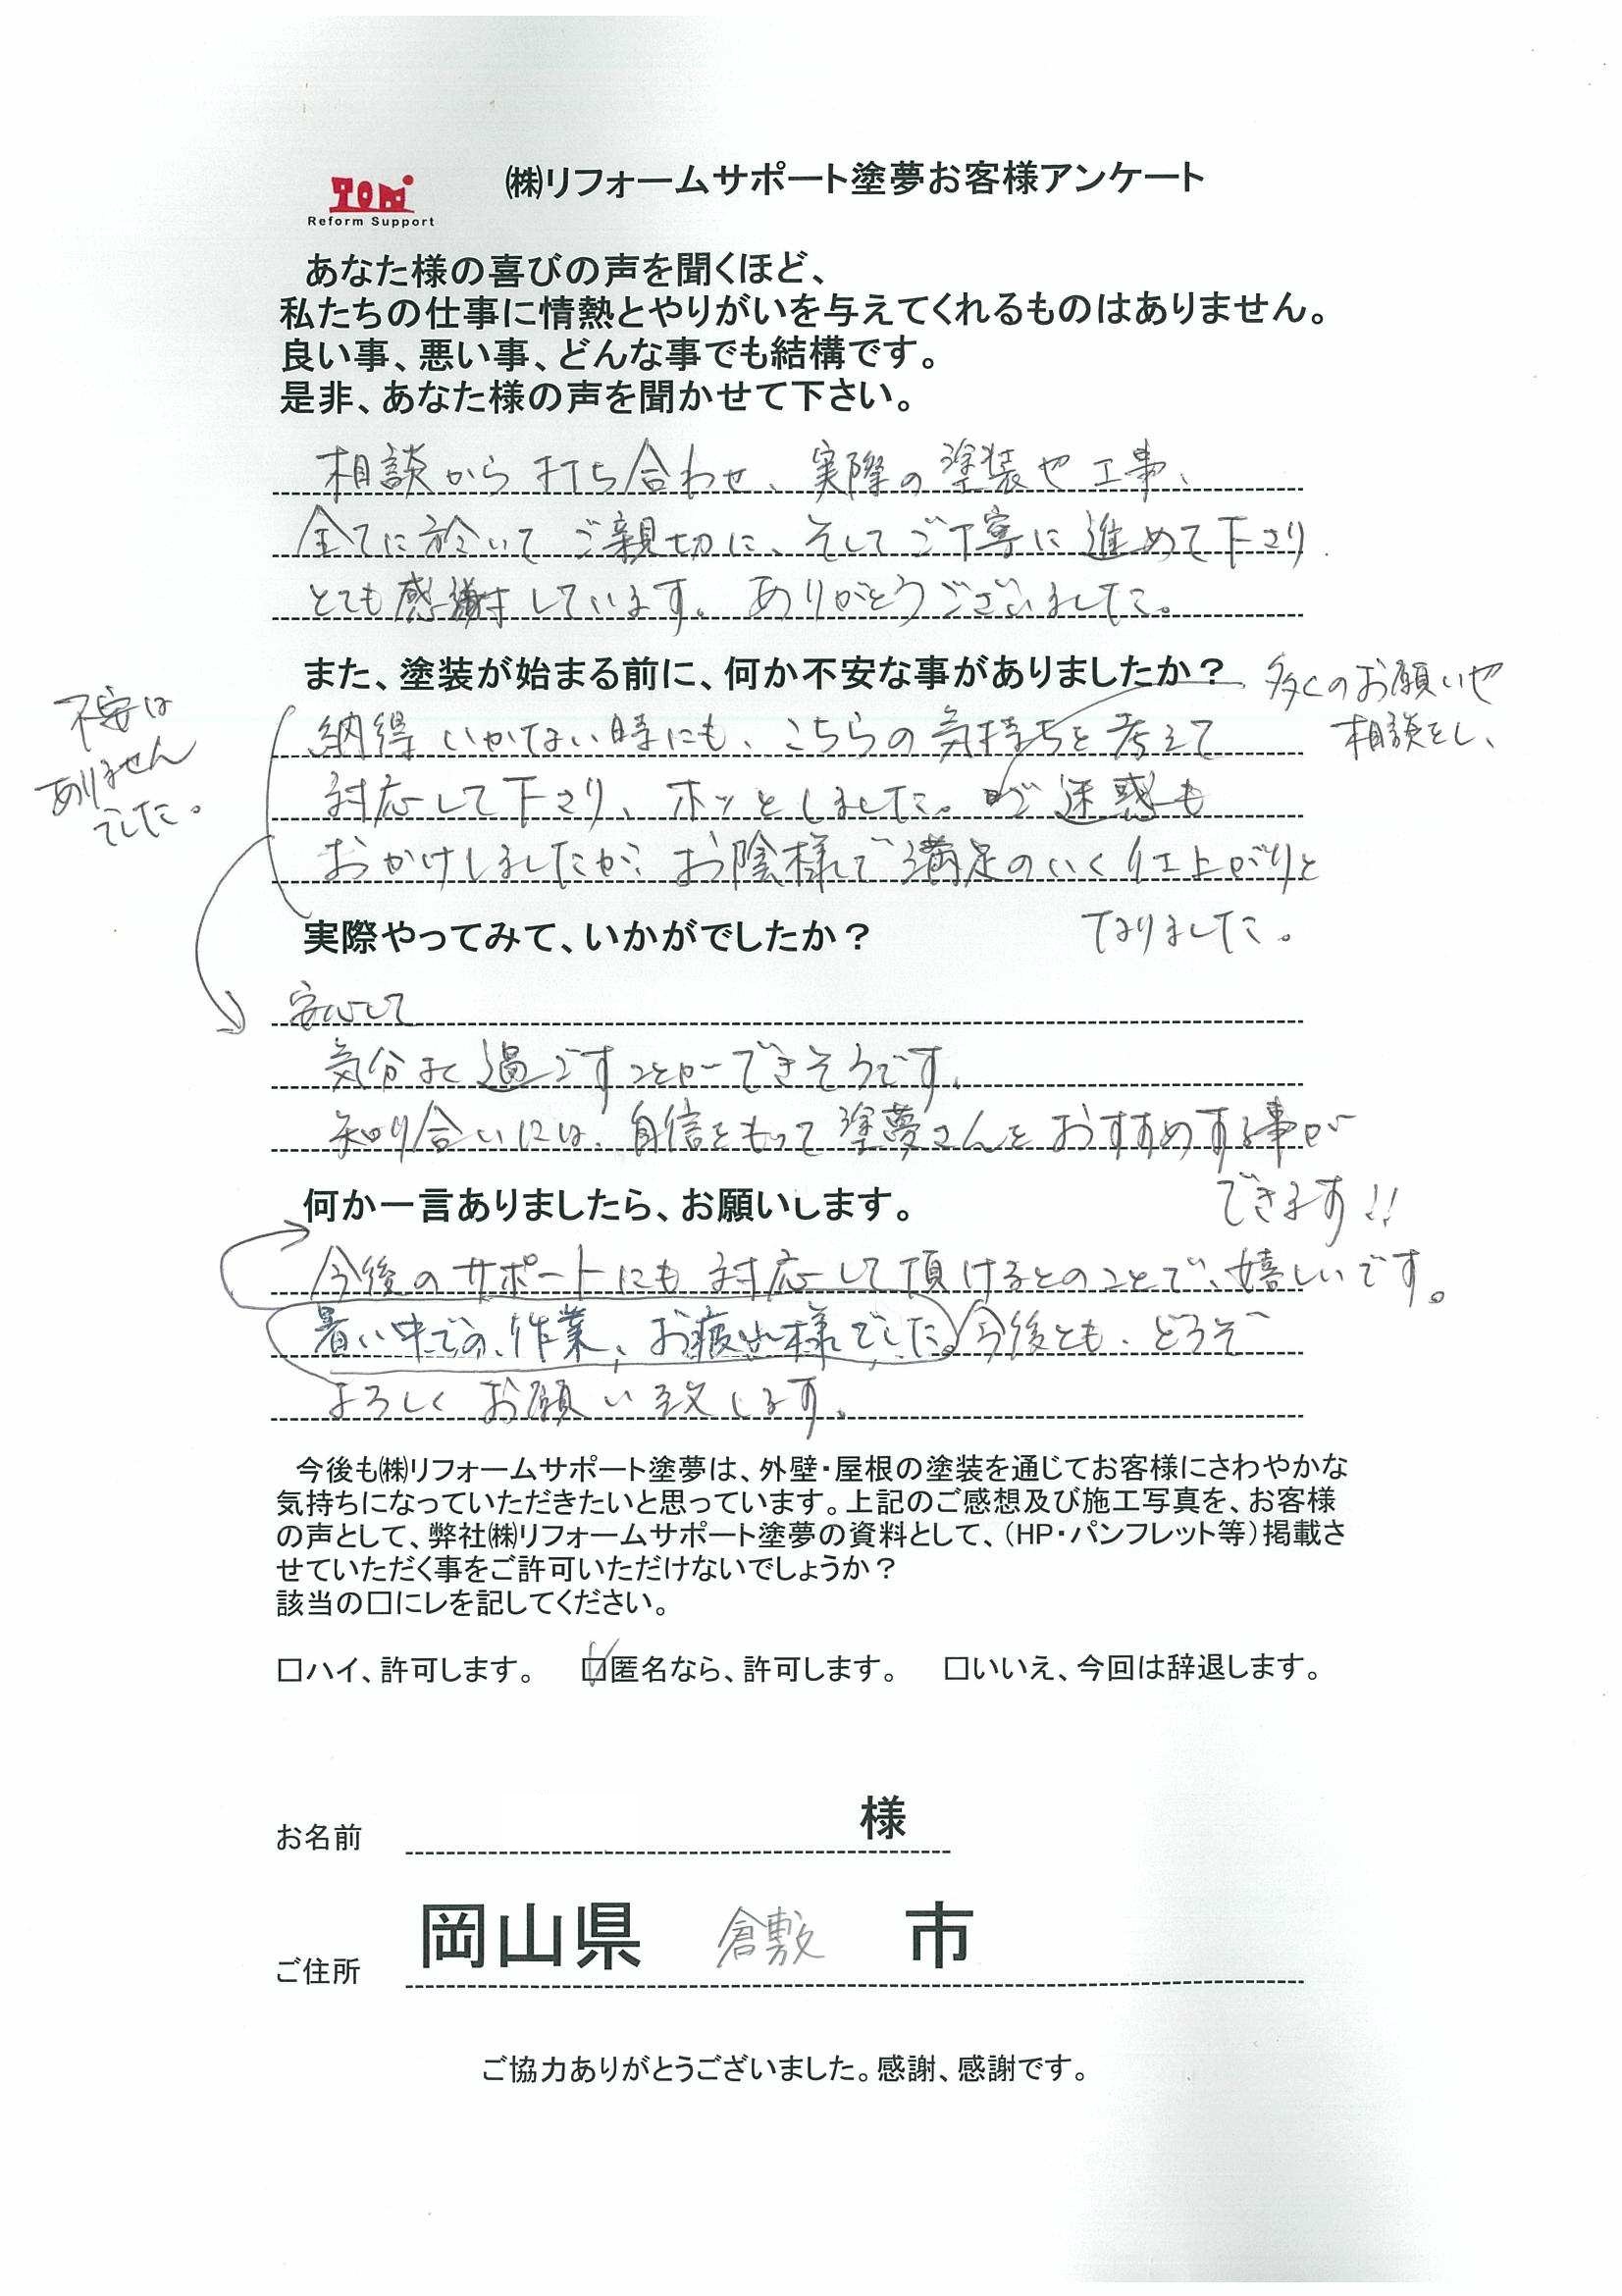 TOM
Reform Support
㈱リフォームサポート塗夢お客様アンケート
あなた様の喜びの声を聞くほど、
私たちの仕事に情熱とやりがいを与えてくれるものはありません。
良い事、悪い事、どんな事でも結構です。
是非、あなた様の声を聞かせて下さい。
相談から打ち合わせ、実際の塗装や工事、
全てに於いてご親切に、そしてご丁寧に進めて下さり
とても感謝しています。ありがとうございました。
また、塗装が始まる前に、何か不安な事がありましたか？
不安は
ありません
でした。
多くのお願いや
相談をし、
納得いかない時にも、こちらの気持ちを考えて
対応して下さり、ホッとしました。ご迷惑も
おかけしましたが、お陰様で満足のいく仕上がりと
なりました。
実際やってみて、いかがでしたか？
安心して
気分よく過ごすことができそうです。
知り合いには、自信をもって塗夢さんをおすすめする事が
できます!!
何か一言ありましたら、お願いします。
今後のサポートにも対応して頂けるとのことで、嬉しいです。
暑い中での作業、お疲れ様でした。今後とも、どうぞ
よろしくお願い致します。
今後も㈱リフォームサポート塗夢は、外壁・屋根の塗装を通じてお客様にさわやかな
気持ちになっていただきたいと思っています。上記のご感想及び施工写真を、お客様
の声として、弊社㈱リフォームサポート塗夢の資料として、（HP・パンフレット等）掲載さ
せていただく事をご許可いただけないでしょうか？
該当の□にレを記してください。
□ハイ、許可します。 ☑匿名なら、許可します。 □いいえ、今回は辞退します。
お名前 様
ご住所 岡山県 倉敷 市
ご協力ありがとうございました。感謝、感謝です。